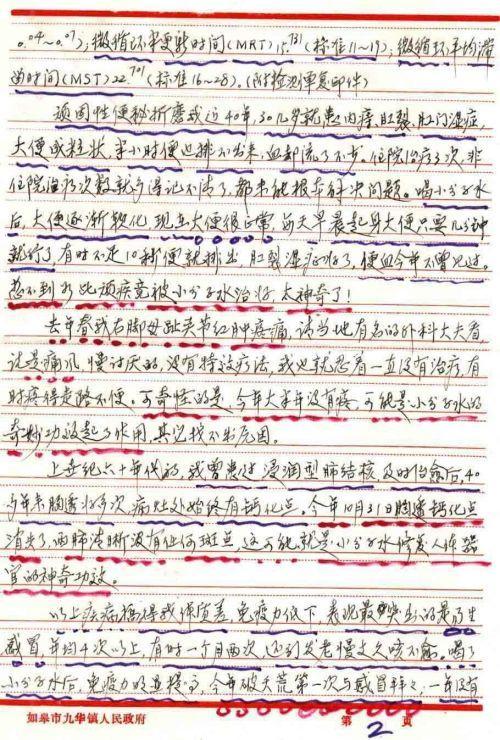 0.04～0.07); 微循环半更新时间(MRT)15.731(标准11～19), 微循环平均滞
留时间(MST)22.701(标准16～28)。(附检测单复印件)
顽固性便秘折磨我近40年,30几岁就患内痔,肛裂,肛门湿症,
大便成粒状,半小时便也排不出来,血却流了不少。住院治疗3次,非
住院治疗次数就多得记不清了,都未能根本解决问题。喝小分子水
后,大便逐渐软化,现在大便很正常,每天早晨起身大便只要几分钟
就行了,有时不足10秒便就排出,肛裂湿症好了,便血今年不曾见过。
想不到如此顽疾竟被小分子水治好,太神奇了!
去年春我右脚母趾关节红肿疼痛,请当地有名的外科大夫看,
说是痛风,慢讨厌的,没有特效疗法,我也就忍着一直没有治疗,有
时疼得走路不便。可奇怪的是,今年大半年没有疼,可能是小分子水的
奇妙功效起了作用,其它找不出原因。
上世纪六十年代初,我曾患过浸润型肺结核,及时治愈后,40
多年来胸透好多次,病灶处始终有钙化点。今年10月31日胸透钙化点
消失了,两肺清晰没有任何斑点,这可能就是小分子水修复人体器
官的神奇功效。
以上疾病搞得我体质差,免疫力低下,表现最突出的是易生
感冒,年均4次以上,有时一个月两次,还到发老慢支久咳不愈。喝了
小分子水后,免疫力明显提高,今年破天荒第一次与感冒拜拜,一年没有
如皋市九华镇人民政府 第 2 页